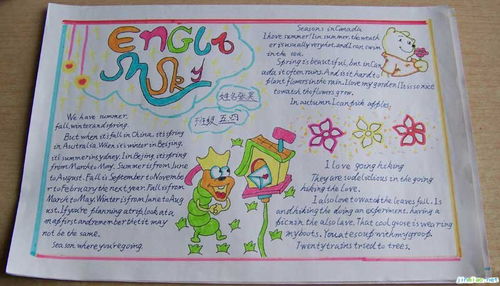 ENGLISH SKY
姓名
班级 五四
We have summer,
fall, winter and spring.
But when it is fall in China, it is spring
in Australia. When it is winter in Beijing,
it is summer in sydney. In Beijing, it is spring
from March to May. Summer is from June
to August. Fall is September to Novembe
r to February the next year. Fall is from
March to May. Winter is from June to Aug
ust. If you're planning a trip, look at a
map first and remember that it may
not be the same.
season where you're going.
Seasons in Canada
I love summer! In summer, the weath
er is usually very hot, and I can swim
in the sea.
Spring is beautiful, but in Can
ada it often rains. And is it hard to
plant flowers in the rain. I love my garden. It is so nice
to watch the flowers grow.
In autumn I can pick apples,
I love going hiking
They are delicious in the going
hiking the love.
I also love to watch the leaves fall. Is
and hiking the doing an experiment, having a
picnic in the also love. That cool goose is wearing
my boots. You ate soup with my group.
Twenty trains tried to trees.